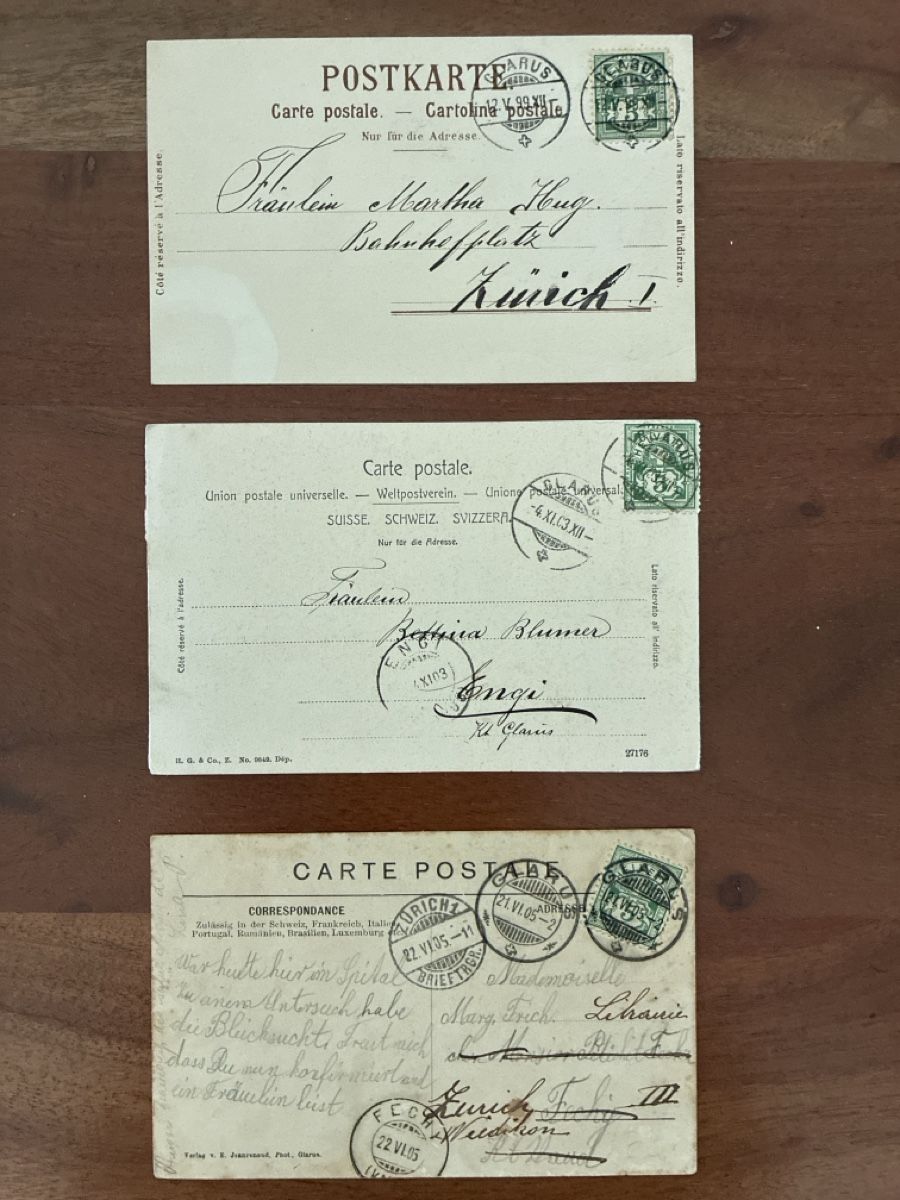 POSTKARTE
Carte postale. — Cartolina postale
Nur für die Adresse.
GLARUS
12.V.99.XII
GLARUS
12.V.99.XII
5
Côté réservé à l'Adresse.
Lato riservato all'indirizzo.
Fräulein Martha Hug.
Bahnhofplatz
Zürich I.
Carte postale.
Union postale universelle. — Weltpostverein. — Unione postale universal
SUISSE. SCHWEIZ. SVIZZERA.
Nur für die Adresse.
GLARUS
-4.XI.03.XII-
GLARUS
Côté réservé à l'adresse.
Lato riservato all' indirizzo.
Fräulein
Bettina Blumer
ENGI
4.XI.03
Engi
Kt Glarus
H. G. & Co., Z. No. 9849. Dép.
27176
CARTE POSTALE
CORRESPONDANCE
ADRESSE
Zulässig in der Schweiz, Frankreich, Italien,
Portugal, Rumänien, Brasilien, Luxemburg
ZÜRICH 1
22.VI.05.-11
BRIEFTRGR.
GLARUS
21.VI.05.-2
GLARUS
21.VI.05
War heute hier im Spital
zu einem Untersuch habe
die Bleichsucht. Freut mich
dass Du nun konfirmiert und
ein Fräulein bist
Mademoiselle
Marg. Frich. Librairie
Zurich Fechy III
Wiedikon
FECHY
22.VI.05
Verlag v. E. Jeanrenaud, Phot., Glarus.